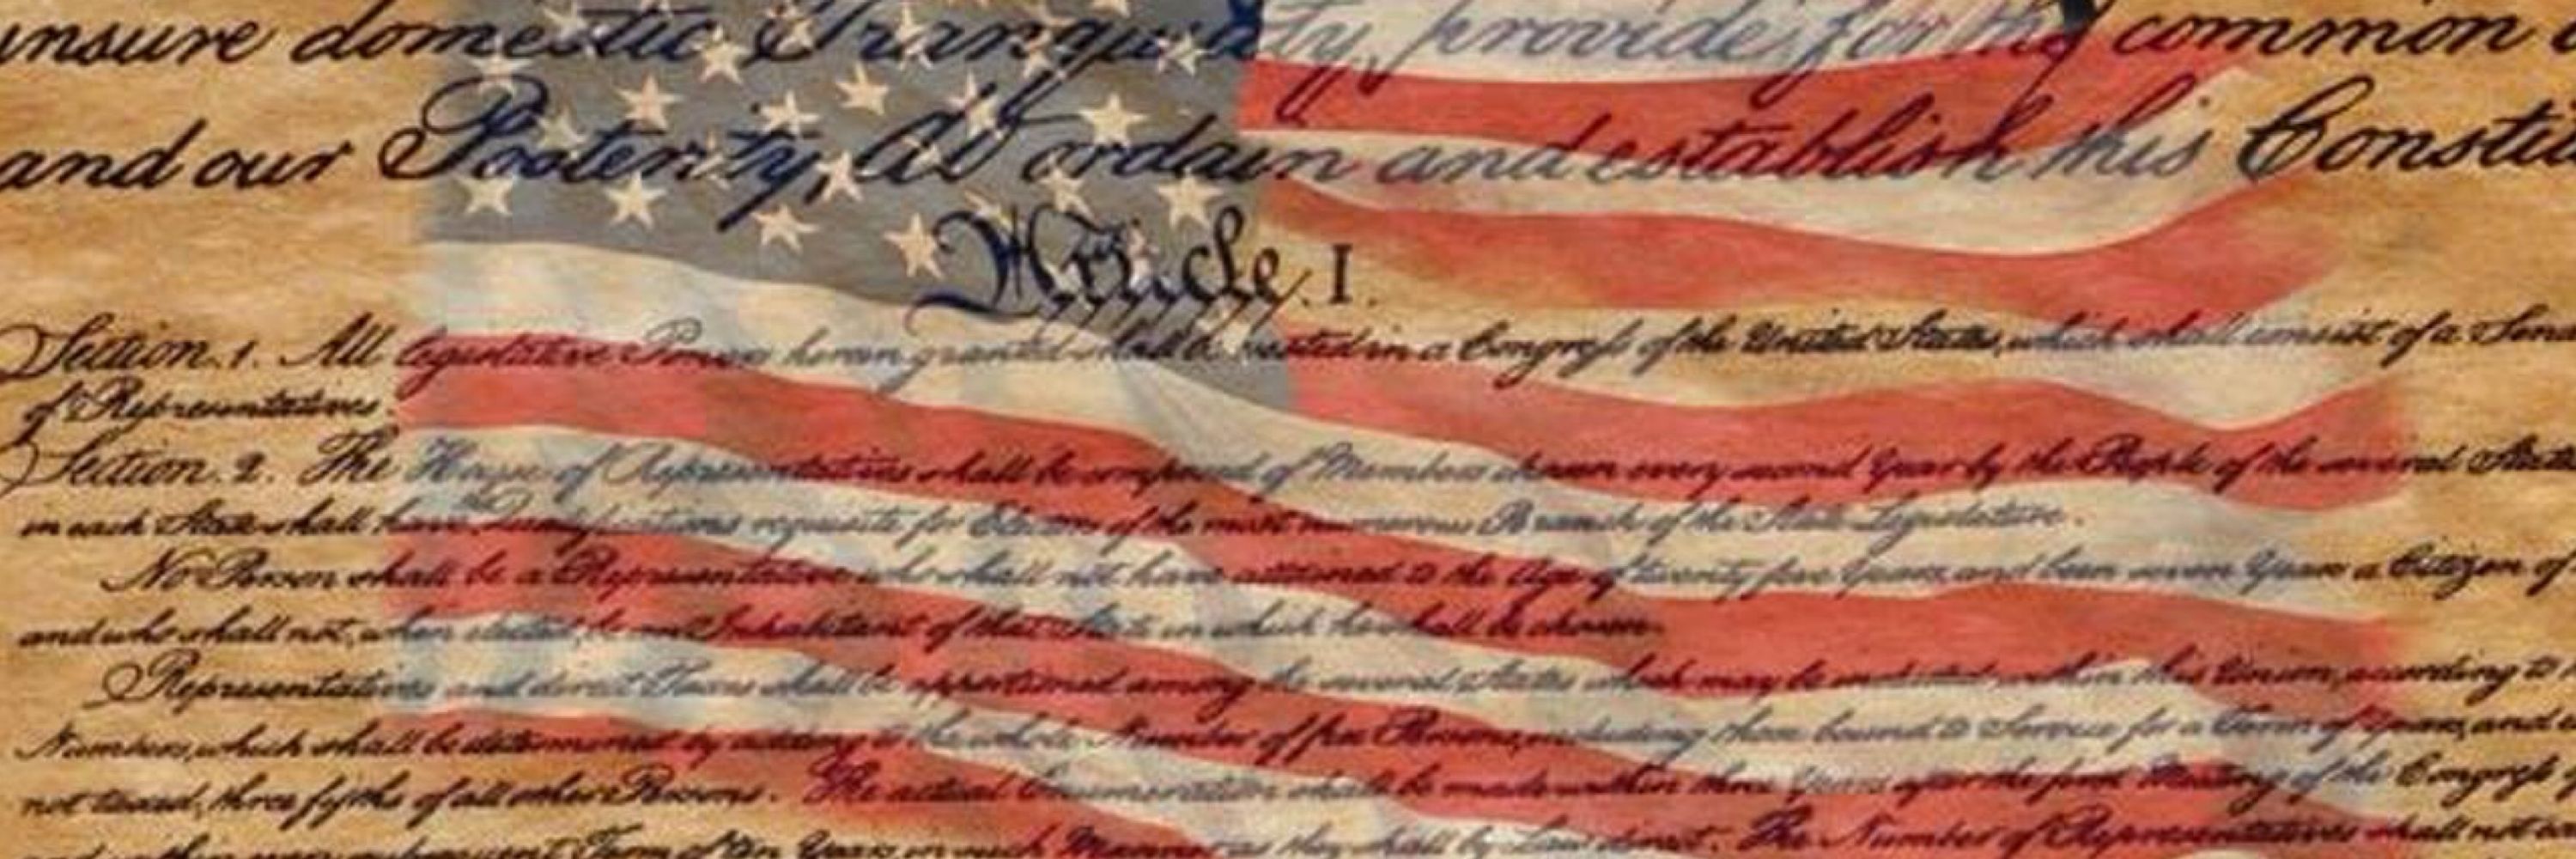 insure domestic Tranquility, provide for the common
and our Posterity, do ordain and establish this Constitu
Article. I.
Section. 1. All legislative Powers herein granted shall be vested in a Congress of the United States, which shall consist of a Sena
of Representatives.
Section. 2. The House of Representatives shall be composed of Members chosen every second Year by the People of the several States
in each State shall have the Qualifications requisite for Electors of the most numerous Branch of the State Legislature.
No Person shall be a Representative who shall not have attained to the Age of twenty five Years, and been seven Years a Citizen of
and who shall not, when elected, be an Inhabitant of that State in which he shall be chosen.
Representatives and direct Taxes shall be apportioned among the several States which may be included within this Union, according to
Numbers, which shall be determined by adding to the whole Number of free Persons, including those bound to Service for a Term of Years, and
not taxed, three fifths of all other Persons. The actual Enumeration shall be made within three Years after the first Meeting of the Congress
every subsequent Term of ten Years, in such Manner as they shall by Law direct. The Number of Representatives shall not